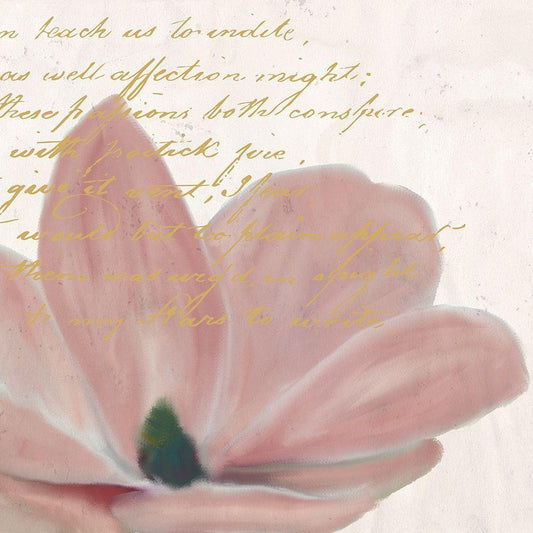 n teach us to indite,
as well affection might;
these passions both conspire,
with poetick fire,
give it vent, I fear
would but too plain appear,
them was urg'd, in spight
my Stars to write,